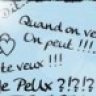 Quand on ve
On peut !!!
te veux !!!
Je PeUx ?!?!?